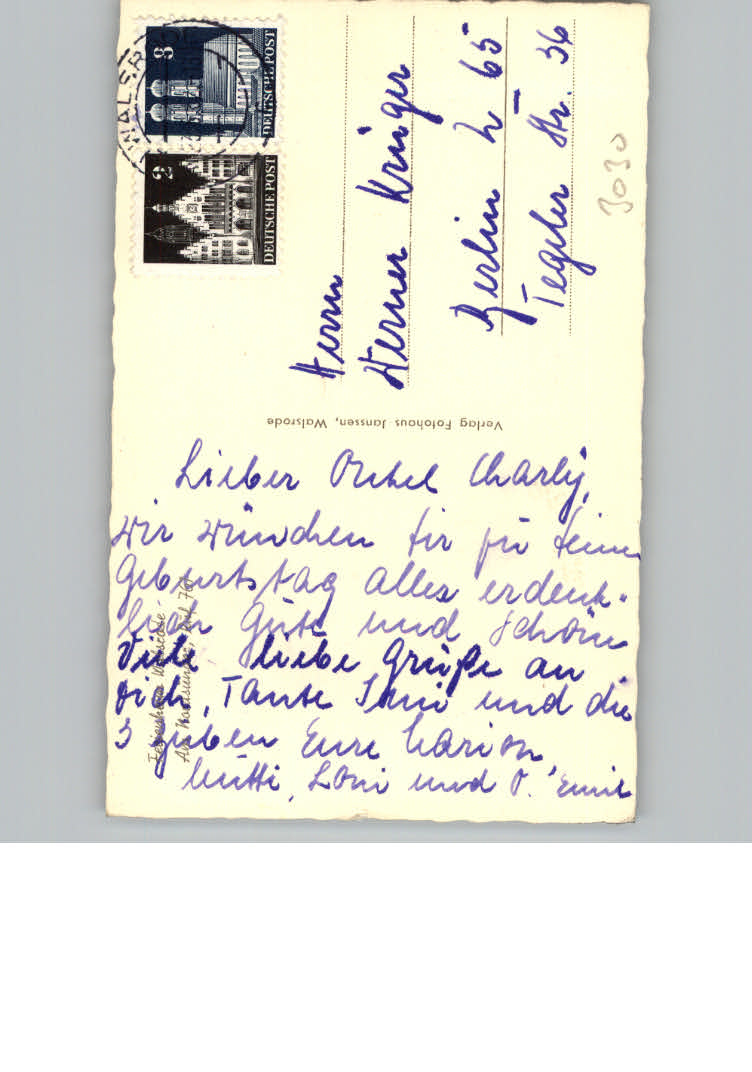 WALSRODE
8
DEUTSCHE POST
2
DEUTSCHE POST
Herrn
Werner Krüger
Berlin N 65
Tegeler Str. 36
3030
Verlag Fotohaus Janssen, Walsrode
Lieber Onkel Charly,
wir wünchen dir zu deinem
Geburtstag alles erdenk-
lich Gute und Schöne
Viele liebe Grüße an
dich, Tante Irmi und die
3 Buben Eure Marion,
Mutti, Loni und O. Emil